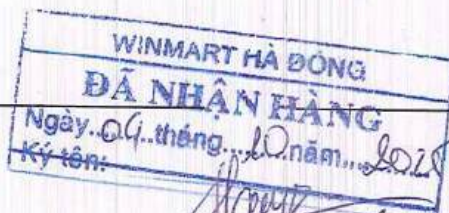 WINMART HÀ ĐÔNG
ĐÃ NHẬN HÀNG
Ngày..04..tháng....10.năm....2025
Ký tên: